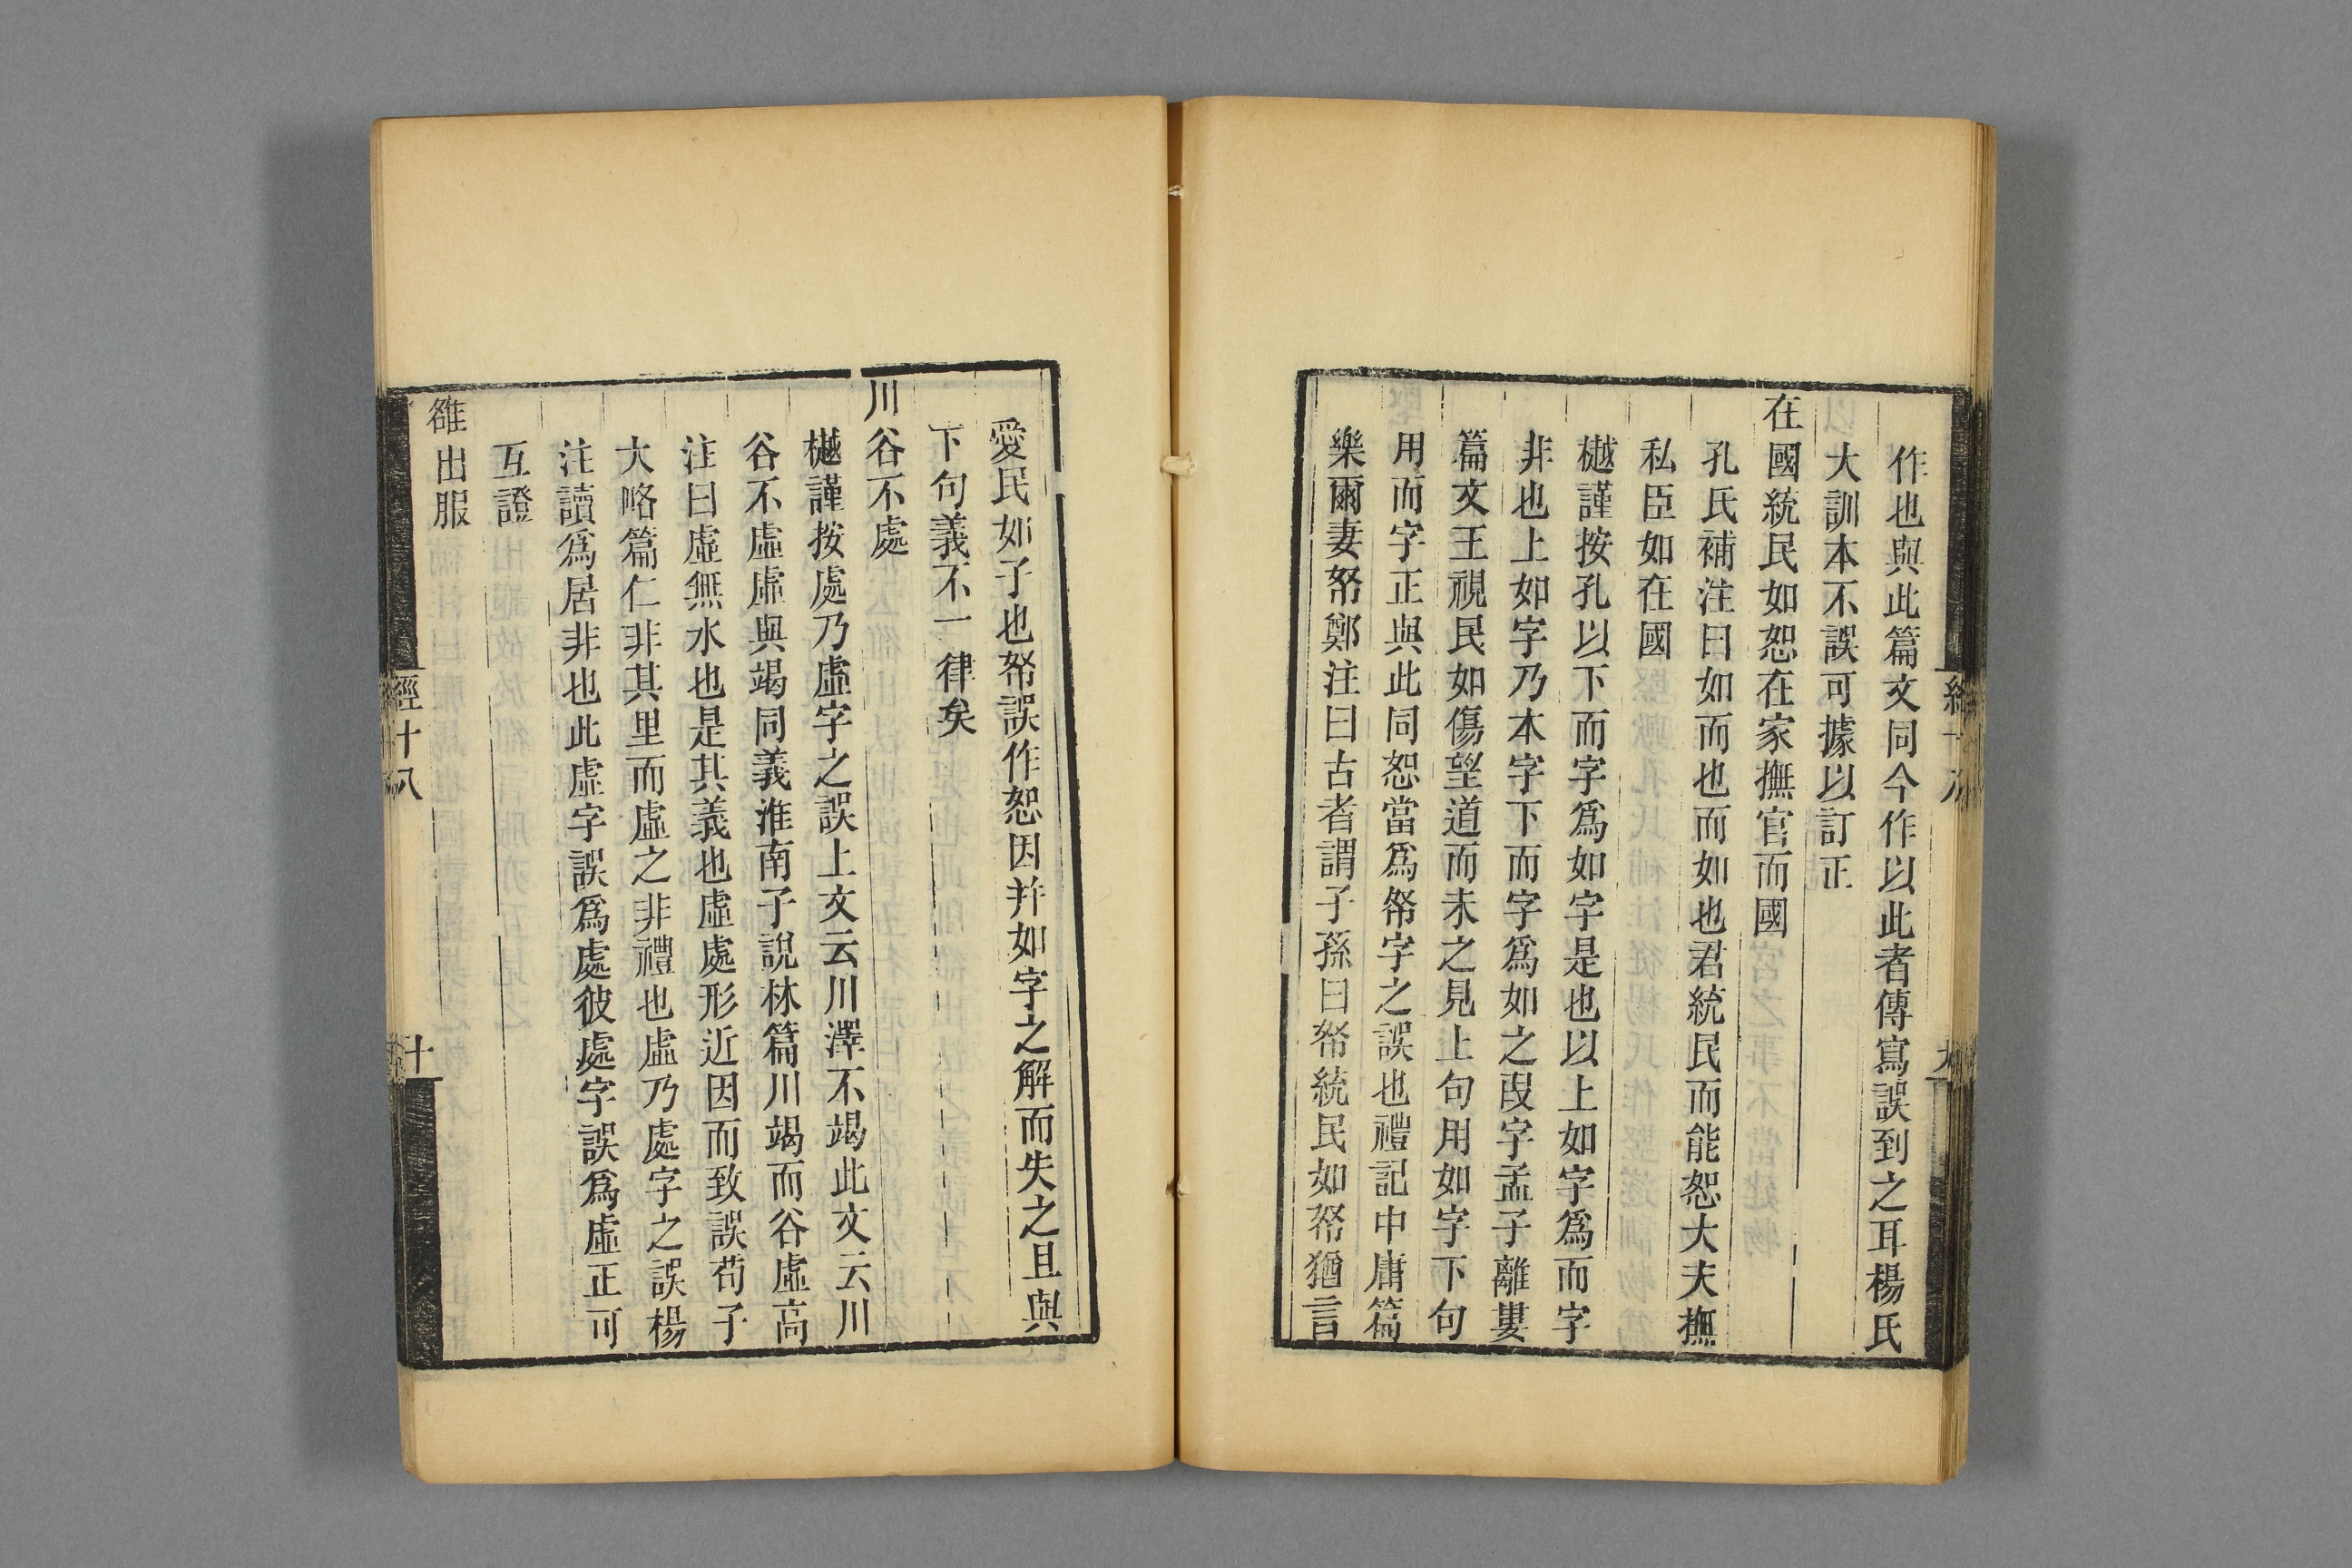 作也與此篇文同今作以此者傳寫誤到之耳楊氏
大訓本不誤可據以訂正
在國統民如恕在家撫官而國
孔氏補注曰如而也而如也君統民而能恕大夫撫
私臣如在國
樾謹按孔以下而字爲如字是也以上如字爲而字
非也上如字乃本字下而字爲如之叚字孟子離婁
篇文王視民如傷望道而未之見上句用如字下句
用而字正與此同恕當爲帑字之誤也禮記中庸篇
樂爾妻帑鄭注曰古者謂子孫曰帑統民如帑猶言
愛民如子也帑誤作恕因幷如字之解而失之且與
下句義不一律矣
川谷不處
樾謹按處乃虛字之誤上文云川澤不竭此文云川
谷不虛虛與竭同義淮南子說林篇川竭而谷虛高
注曰虛無水也是其義也虛處形近因而致誤荀子
大略篇仁非其里而虛之非禮也虛乃處字之誤楊
注讀爲居非也此虛字誤爲處彼處字誤爲虛正可
互證
雒出服
經十八
十